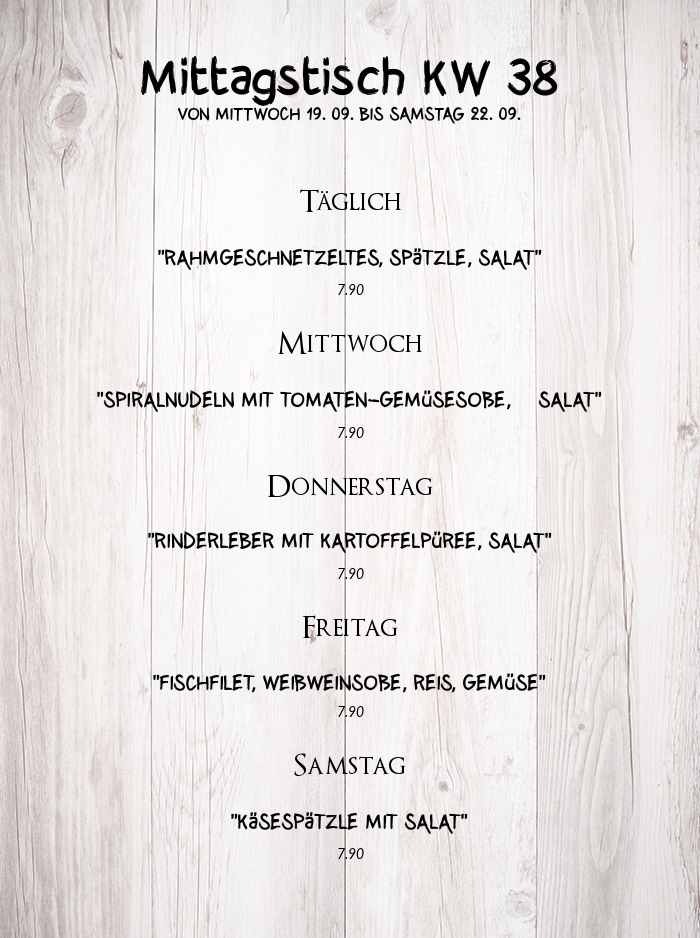 Mittagstisch KW 38
VON MITTWOCH 19. 09. BIS SAMSTAG 22. 09.
TÄGLICH
"RAHMGESCHNETZELTES, SPÄTZLE, SALAT"
7.90
MITTWOCH
"SPIRALNUDELN MIT TOMATEN-GEMÜSESOßE, SALAT"
7.90
DONNERSTAG
"RINDERLEBER MIT KARTOFFELPÜREE, SALAT"
7.90
FREITAG
"FISCHFILET, WEIßWEINSOßE, REIS, GEMÜSE"
7.90
SAMSTAG
"KÄSESPÄTZLE MIT SALAT"
7.90